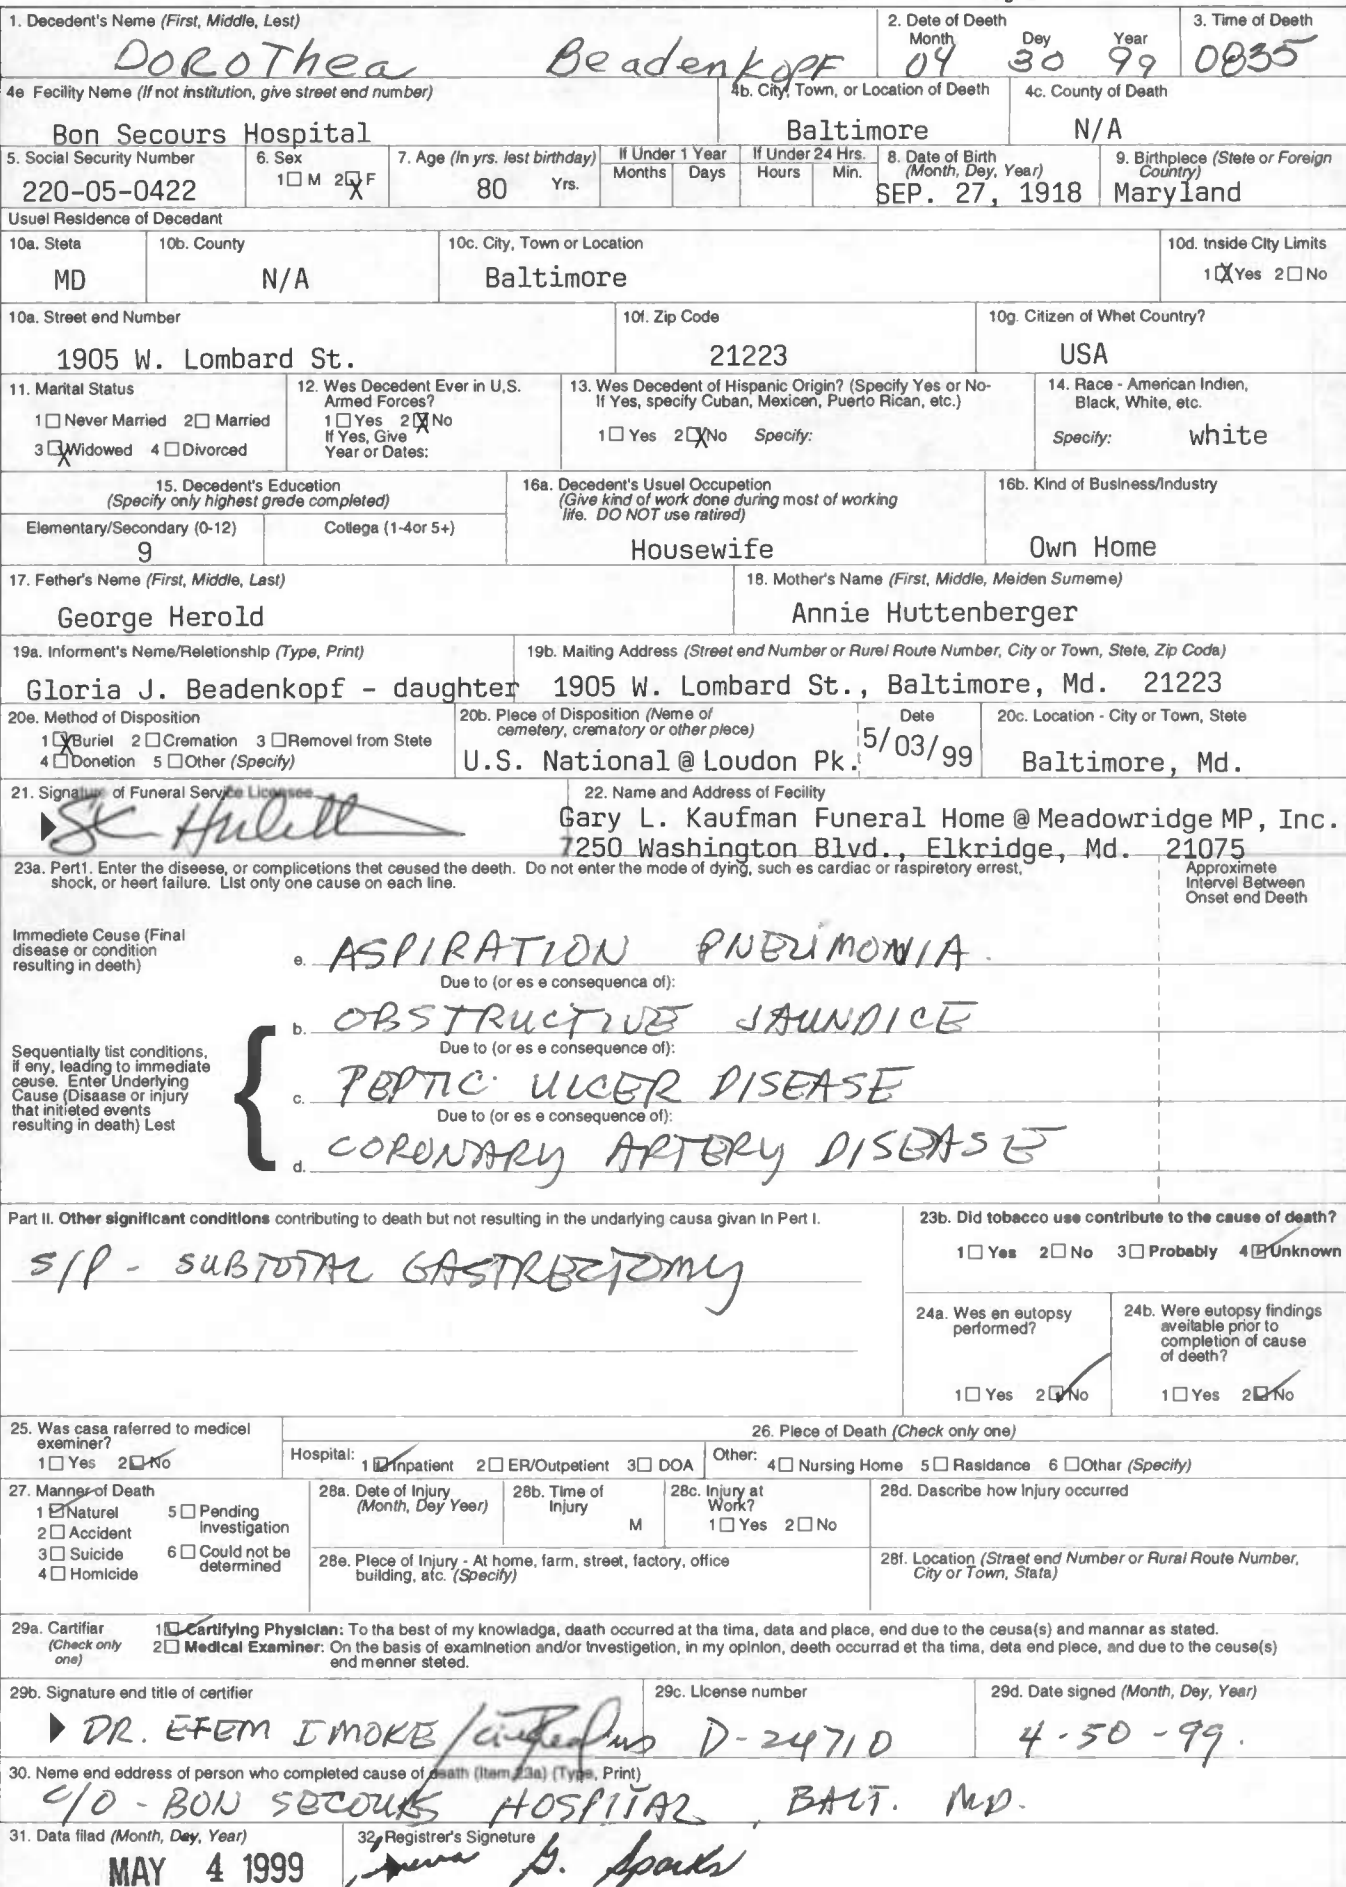 1. Decedent's Name (First, Middle, Lest)
DOROThea Beadenkopf
2. Dete of Deeth
Month Dey Year
04 30 99
3. Time of Deeth
0835
4e Fecility Name (If not institution, give street end number)
Bon Secours Hospital
4b. City, Town, or Location of Deeth
Baltimore
4c. County of Death
N/A
5. Social Security Number
220-05-0422
6. Sex
1☐ M 2☒ F
7. Age (In yrs. lest birthday)
80 Yrs.
If Under 1 Year
Months Days
If Under 24 Hrs.
Hours Min.
8. Date of Birth
(Month, Dey, Year)
SEP. 27, 1918
9. Birthplece (Stete or Foreign
Country)
Maryland
Usuel Residence of Decedant
10a. Steta
MD
10b. County
N/A
10c. City, Town or Location
Baltimore
10d. Inside City Limits
1☒Yes 2☐No
10a. Street end Number
1905 W. Lombard St.
10f. Zip Code
21223
10g. Citizen of Whet Country?
USA
11. Marital Status
1☐ Never Married 2☐ Married
3☒Widowed 4☐Divorced
12. Wes Decedent Ever in U.S.
Armed Forces?
1☐Yes 2☒No
If Yes, Give
Year or Dates:
13. Wes Decedent of Hispanic Origin? (Specify Yes or No-
If Yes, specify Cuban, Mexicen, Puerto Rican, etc.)
1☐ Yes 2☒No Specify:
14. Race - American Indien,
Black, White, etc.
Specify: white
15. Decedent's Education
(Specify only highest grede completed)
Elementary/Secondary (0-12)
9
Collega (1-4or 5+)
16a. Decedent's Usuel Occupetion
(Give kind of work done during most of working
life. DO NOT use ratired)
Housewife
16b. Kind of Business/Industry
Own Home
17. Fether's Name (First, Middle, Last)
George Herold
18. Mother's Name (First, Middle, Meiden Surneme)
Annie Huttenberger
19a. Informent's Neme/Reletionship (Type, Print)
Gloria J. Beadenkopf - daughter
19b. Mailing Address (Street end Number or Rurel Route Number, City or Town, Stete, Zip Coda)
1905 W. Lombard St., Baltimore, Md. 21223
20e. Method of Disposition
1☒Buriel 2☐Cremation 3☐Removel from Stete
4☐Donetion 5☐Other (Specify)
20b. Plece of Disposition (Neme of
cemetery, crematory or other plece)
U.S. National @ Loudon Pk.
Dete
5/03/99
20c. Location - City or Town, Stete
Baltimore, Md.
21. Signature of Funeral Service Licensee
22. Name and Address of Fecility
Gary L. Kaufman Funeral Home @ Meadowridge MP, Inc.
7250 Washington Blvd., Elkridge, Md. 21075
23a. Pert1. Enter the diseese, or complicetions thet ceused the deeth. Do not enter the mode of dying, such es cardiac or raspiretory errest,
shock, or heert failure. List only one cause on each line.
Approximete
Intervel Between
Onset end Deeth
Immediete Ceuse (Final
disease or condition
resulting in death)
e. ASPIRATION PNEUMONIA.
Due to (or es e consequenca of):
b. OBSTRUCTIVE JAUNDICE
Due to (or es e consequence of):
c. PEPTIC ULCER DISEASE
Due to (or es e consequence of):
d. CORONARY ARTERY DISEASE
Sequentially tist conditions,
if eny, leading to immediate
ceuse. Enter Underlying
Cause (Disaase or injury
that initieted events
resulting in death) Lest
Part II. Other significant conditions contributing to death but not resulting in the undarlying causa givan in Pert I.
S/P - SUBTOTAL GASTRECTOMY
23b. Did tobacco use contribute to the cause of death?
1☐ Yes 2☐ No 3☐ Probably 4☑Unknown
24a. Wes en eutopsy
performed?
1☐ Yes 2☑No
24b. Were eutopsy findings
aveilable prior to
completion of cause
of deeth?
1☐Yes 2☑No
25. Was casa raferred to medicel
exeminer?
1☐ Yes 2☑No
26. Plece of Death (Check only one)
Hospital: 1☑Inpatient 2☐ ER/Outpetient 3☐ DOA
Other: 4☐ Nursing Home 5☐ Rasidance 6☐Othar (Specify)
27. Manner of Death
1☑Naturel 5☐ Pending
Investigation
2☐ Accident
3☐ Suicide 6☐ Could not be
determined
4☐ Homicide
28a. Dete of Injury
(Month, Dey Yeer)
28b. Time of
Injury
M
28c. Injury at
Work?
1☐Yes 2☐No
28d. Dascribe how Injury occurred
28e. Plece of Injury - At home, farm, street, factory, office
building, atc. (Specify)
28f. Location (Straet end Number or Rural Route Number,
City or Town, Stata)
29a. Cartifiar
(Check only
one)
1☑Cartifying Physician: To tha best of my knowladga, daath occurred at tha tima, data and place, end due to the ceusa(s) and mannar as stated.
2☐ Medical Examiner: On the basis of examinetion and/or Invesligetion, in my opinlon, deeth occurrad et tha tima, deta end plece, and due to the ceuse(s)
end menner steted.
29b. Signature end title of certifier
DR. EFEM IMOKE /
29c. License number
D-24710
29d. Date signed (Month, Dey, Year)
4-50-99.
30. Neme end eddress of person who completed cause of death (Item 23a) (Type, Print)
C/O - BON SECOURS HOSPITAL, BALT. MD.
31. Data filad (Month, Day, Year)
MAY 4 1999
32. Registrer's Signeture
G. Sparks